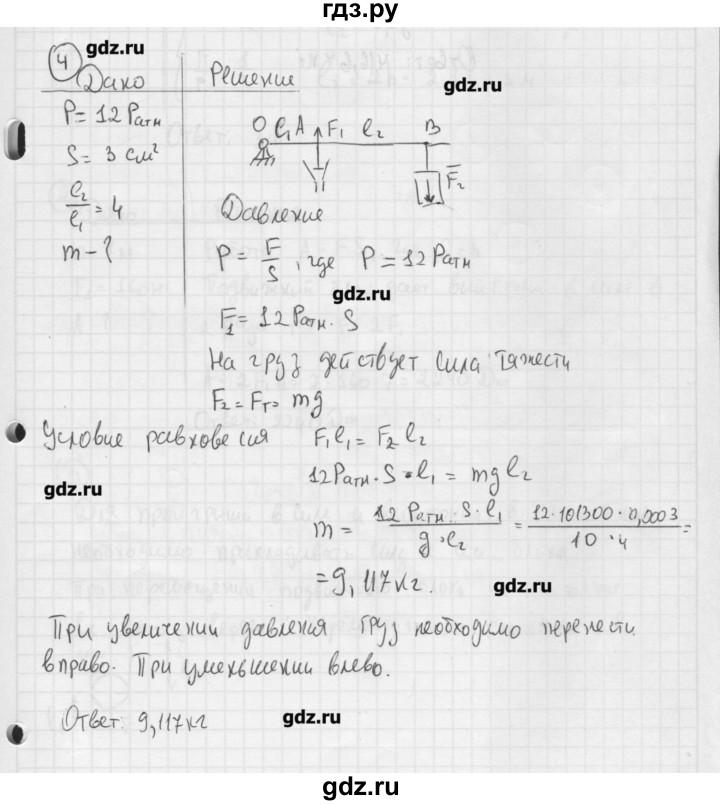 гдз.ру
gdz.ru
4
Дано
Решение
gdz.ru
P = 12 Pатм
S = 3 см²
l₂/l₁ = 4
m - ?
O l₁ A F₁ l₂ B
F₂
Давление
P = F/S, где P = 12 Pатм
gdz.ru
F₁ = 12 Pатм · S
На груз действует сила тяжести
F₂ = Fт = mg
Условие равновесия F₁l₁ = F₂l₂
gdz.ru
12 Pатм · S · l₁ = mgl₂
m = 12 Pатм · S · l₁ / g · l₂ = 12 · 101300 · 0,0003 / 10 · 4 =
= 9,117 кг.
gdz.ru
При увеличении давления груз необходимо перенести
вправо. При уменьшении влево.
Ответ: 9,117 кг
gdz.ru
gdz.ru